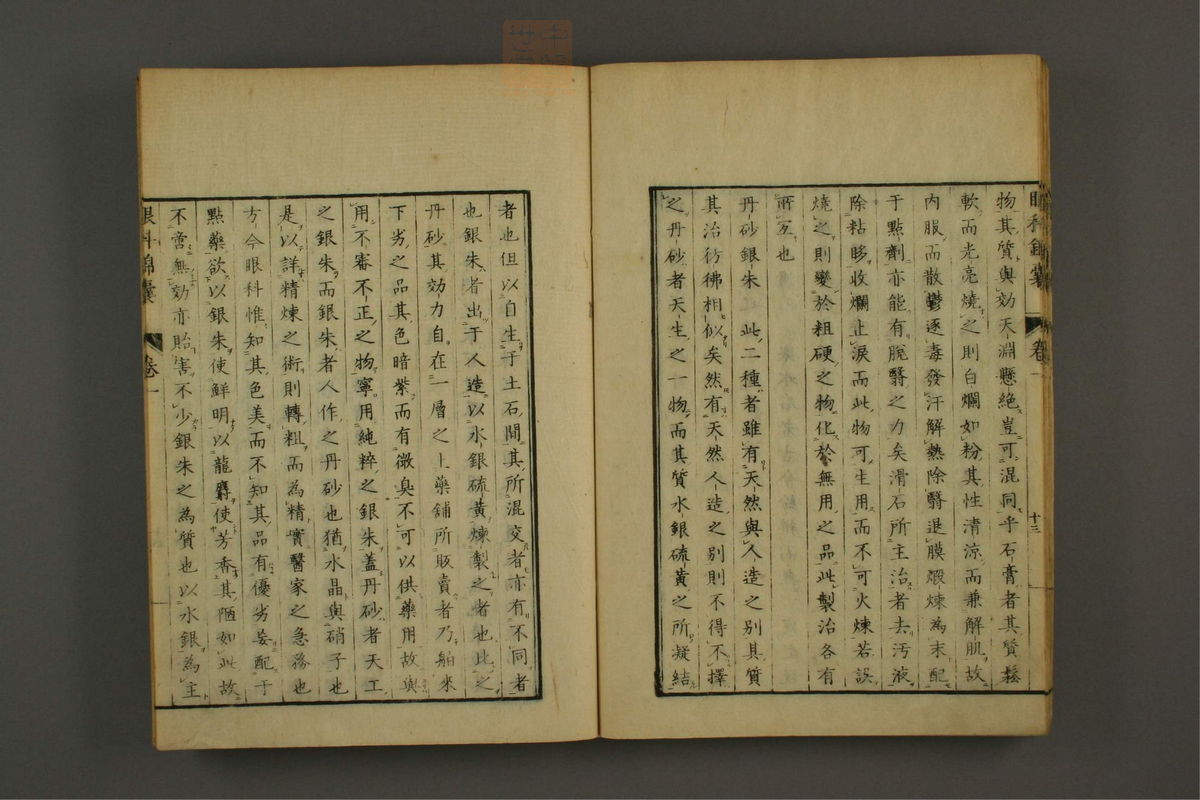 眼科錦囊 卷一 十三
物其質與効天淵懸絶豈可混同乎石膏者其質鬆
軟而光亮燒之則白爛如粉其性清涼而兼解肌故
内服而散鬱逐毒發汗解熱除翳退膜煅煉為末配
于點劑亦能有脫翳之力矣滑石所主治者去汚液
除粘眵收爛止淚而此物可生用而不可火煉若誤
燒之則變於粗硬之物化於無用之品此製治各有
所互也
丹砂銀朱 此二種者雖有天然與人造之別其質
其治彷彿相似矣然有天然人造之別則不得不擇
之丹砂者天生之一物而其質水銀硫黄之所凝結
者也但以自生于土石間其所混交者亦有不同者
也銀朱者出于人造以水銀硫黄煉製之者也此之
丹砂其効力自在一層之上藥舖所販賣者乃舶來
下劣之品其色暗紫而有微臭不可以供藥用故與
用不審不正之物寧用純粹之銀朱蓋丹砂者天工
之銀朱而銀朱者人作之丹砂也猶水晶與硝子也
是以詳精煉之術則轉粗而為精實醫家之急務也
方今眼科惟知其色美而不知其品有優劣妄配于
點藥欲以銀朱使鮮明以龍麝使芳香其陋如此故
不啻無効亦貽害不少銀朱之為質也以水銀為主
眼科錦囊 卷一